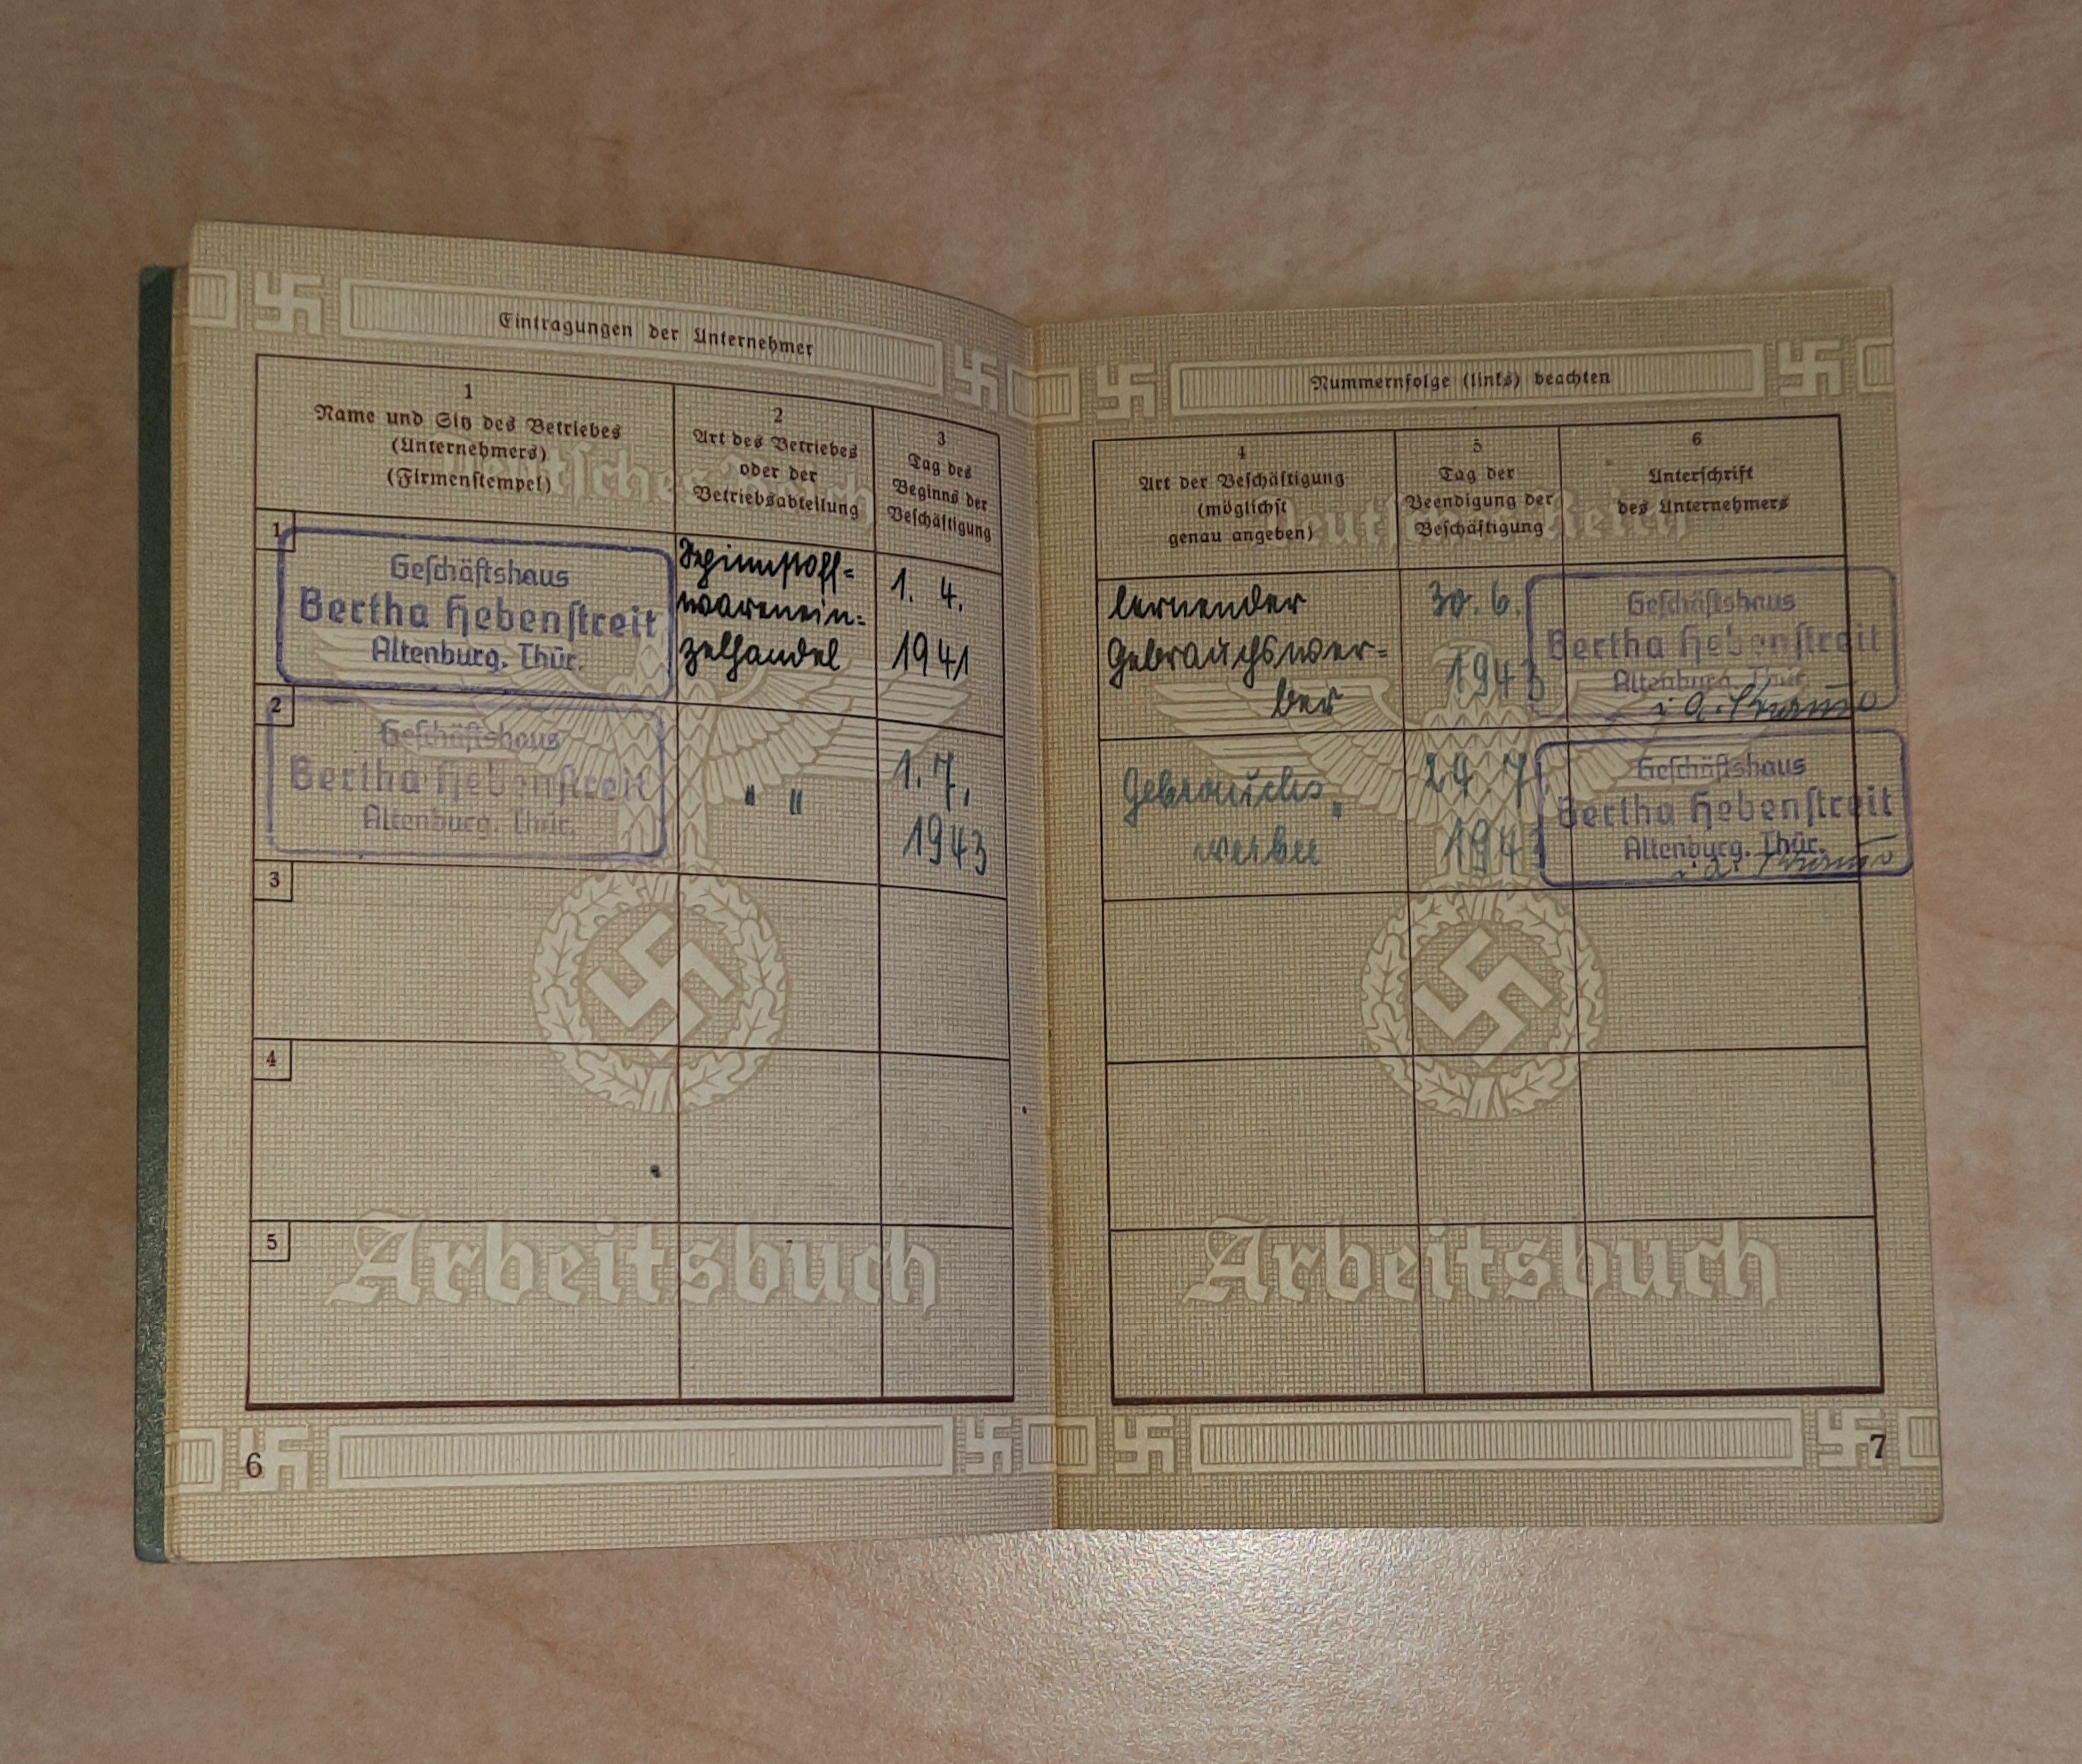 Eintragungen der Unternehmer
1
Name und Sitz des Betriebes
(Unternehmers)
(Firmenstempel)
2
Art des Betriebes
oder der
Betriebsabteilung
3
Tag des
Beginns der
Beschäftigung
1
Geschäftshaus
Bertha Hebenstreit
Altenburg, Thür.
Spinnstoff-
warenein-
zelhandel
1. 4.
1941
2
Geschäftshaus
Bertha Hebenstreit
Altenburg, Thür.
" "
1. 7.
1943
3
4
5
Deutsches Reich
Arbeitsbuch
6
Nummernfolge (links) beachten
4
Art der Beschäftigung
(möglichst
genau angeben)
5
Tag der
Beendigung der
Beschäftigung
6
Unterschrift
des Unternehmers
lernender
Gebrauchswer-
ber
30. 6.
1943
Geschäftshaus
Bertha Hebenstreit
Altenburg, Thür.
i. A.
Gebrauchs
werber
24. 7.
1943
Geschäftshaus
Bertha Hebenstreit
Altenburg, Thür.
i. A.
Deutsches Reich
Arbeitsbuch
7